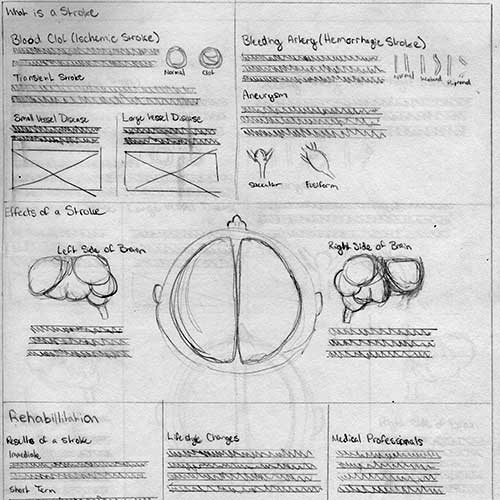 What is a Stroke
Blood Clot (Ischemic Stroke)
Normal
Clot
Transient Stroke
Small Vessel Disease
Large Vessel Disease
Bleeding Artery (Hemorrhagic Stroke)
Normal
Weakened
Ruptured
Aneurysm
Saccular
Fusiform
Effects of a Stroke
Left Side of Brain
Right Side of Brain
Rehabilitation
Results of a stroke
Immediate
Short Term
Lifestyle Changes
Medical Professionals